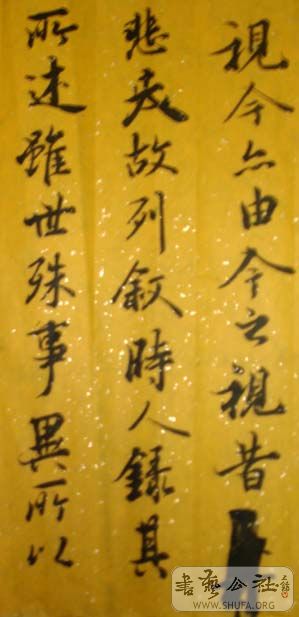 視今亦由今之視昔
悲夫故列叙時人録其
所述雖世殊事異所以
書艺公社
WWW.SHUFA.ORG